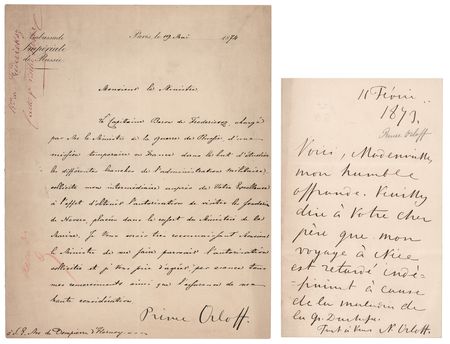 Ambassade
Impériale
de Russie
Paris, le 19 Mai 1874
Monsieur le Ministre,
Le Capitaine Baron de Fredericksz, chargé
par Mr le Ministre de la guerre de Russie d'une
mission temporaire en France dans le but d'étudier
les différentes branches de l'administration militaire,
sollicite mon intermédiaire auprès de Votre Excellence
à l'effet d'obtenir l'autorisation de visiter la fonderie
de placée dans le ressort du Ministère de la
Marine. Je vous très reconnaissant Monsieur
le Ministre de me faire parvenir l'autorisation
sollicitée et je vous prie d'agréer par avance tous
mes remerciements ainsi que l'assurance de ma
haute considération.
Prince Orloff.
à S. E. Mr de Dompierre d'Hornoy
11 Février
1873.
Prince Orloff
Voici, Mademoiselle,
mon humble
offrande. Veuillez
dire à Votre cher
père que mon
voyage à Nice
est retardé indé-
finiment à cause
de la maladie de
la Gr. Duchesse.
Tout à Vous N. Orloff.